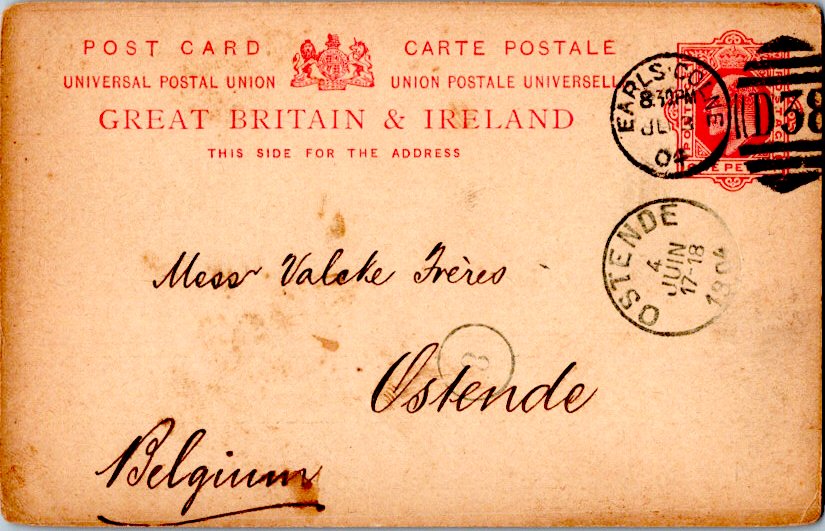 POST CARD CARTE POSTALE
UNIVERSAL POSTAL UNION UNION POSTALE UNIVERSELL
GREAT BRITAIN & IRELAND
THIS SIDE FOR THE ADDRESS
EARLS·COLNE
8.30PM
JU
04
D38
OSTENDE
4
JUIN
17-18
1904
Mess Valcke Frères
8
Ostende
Belgium